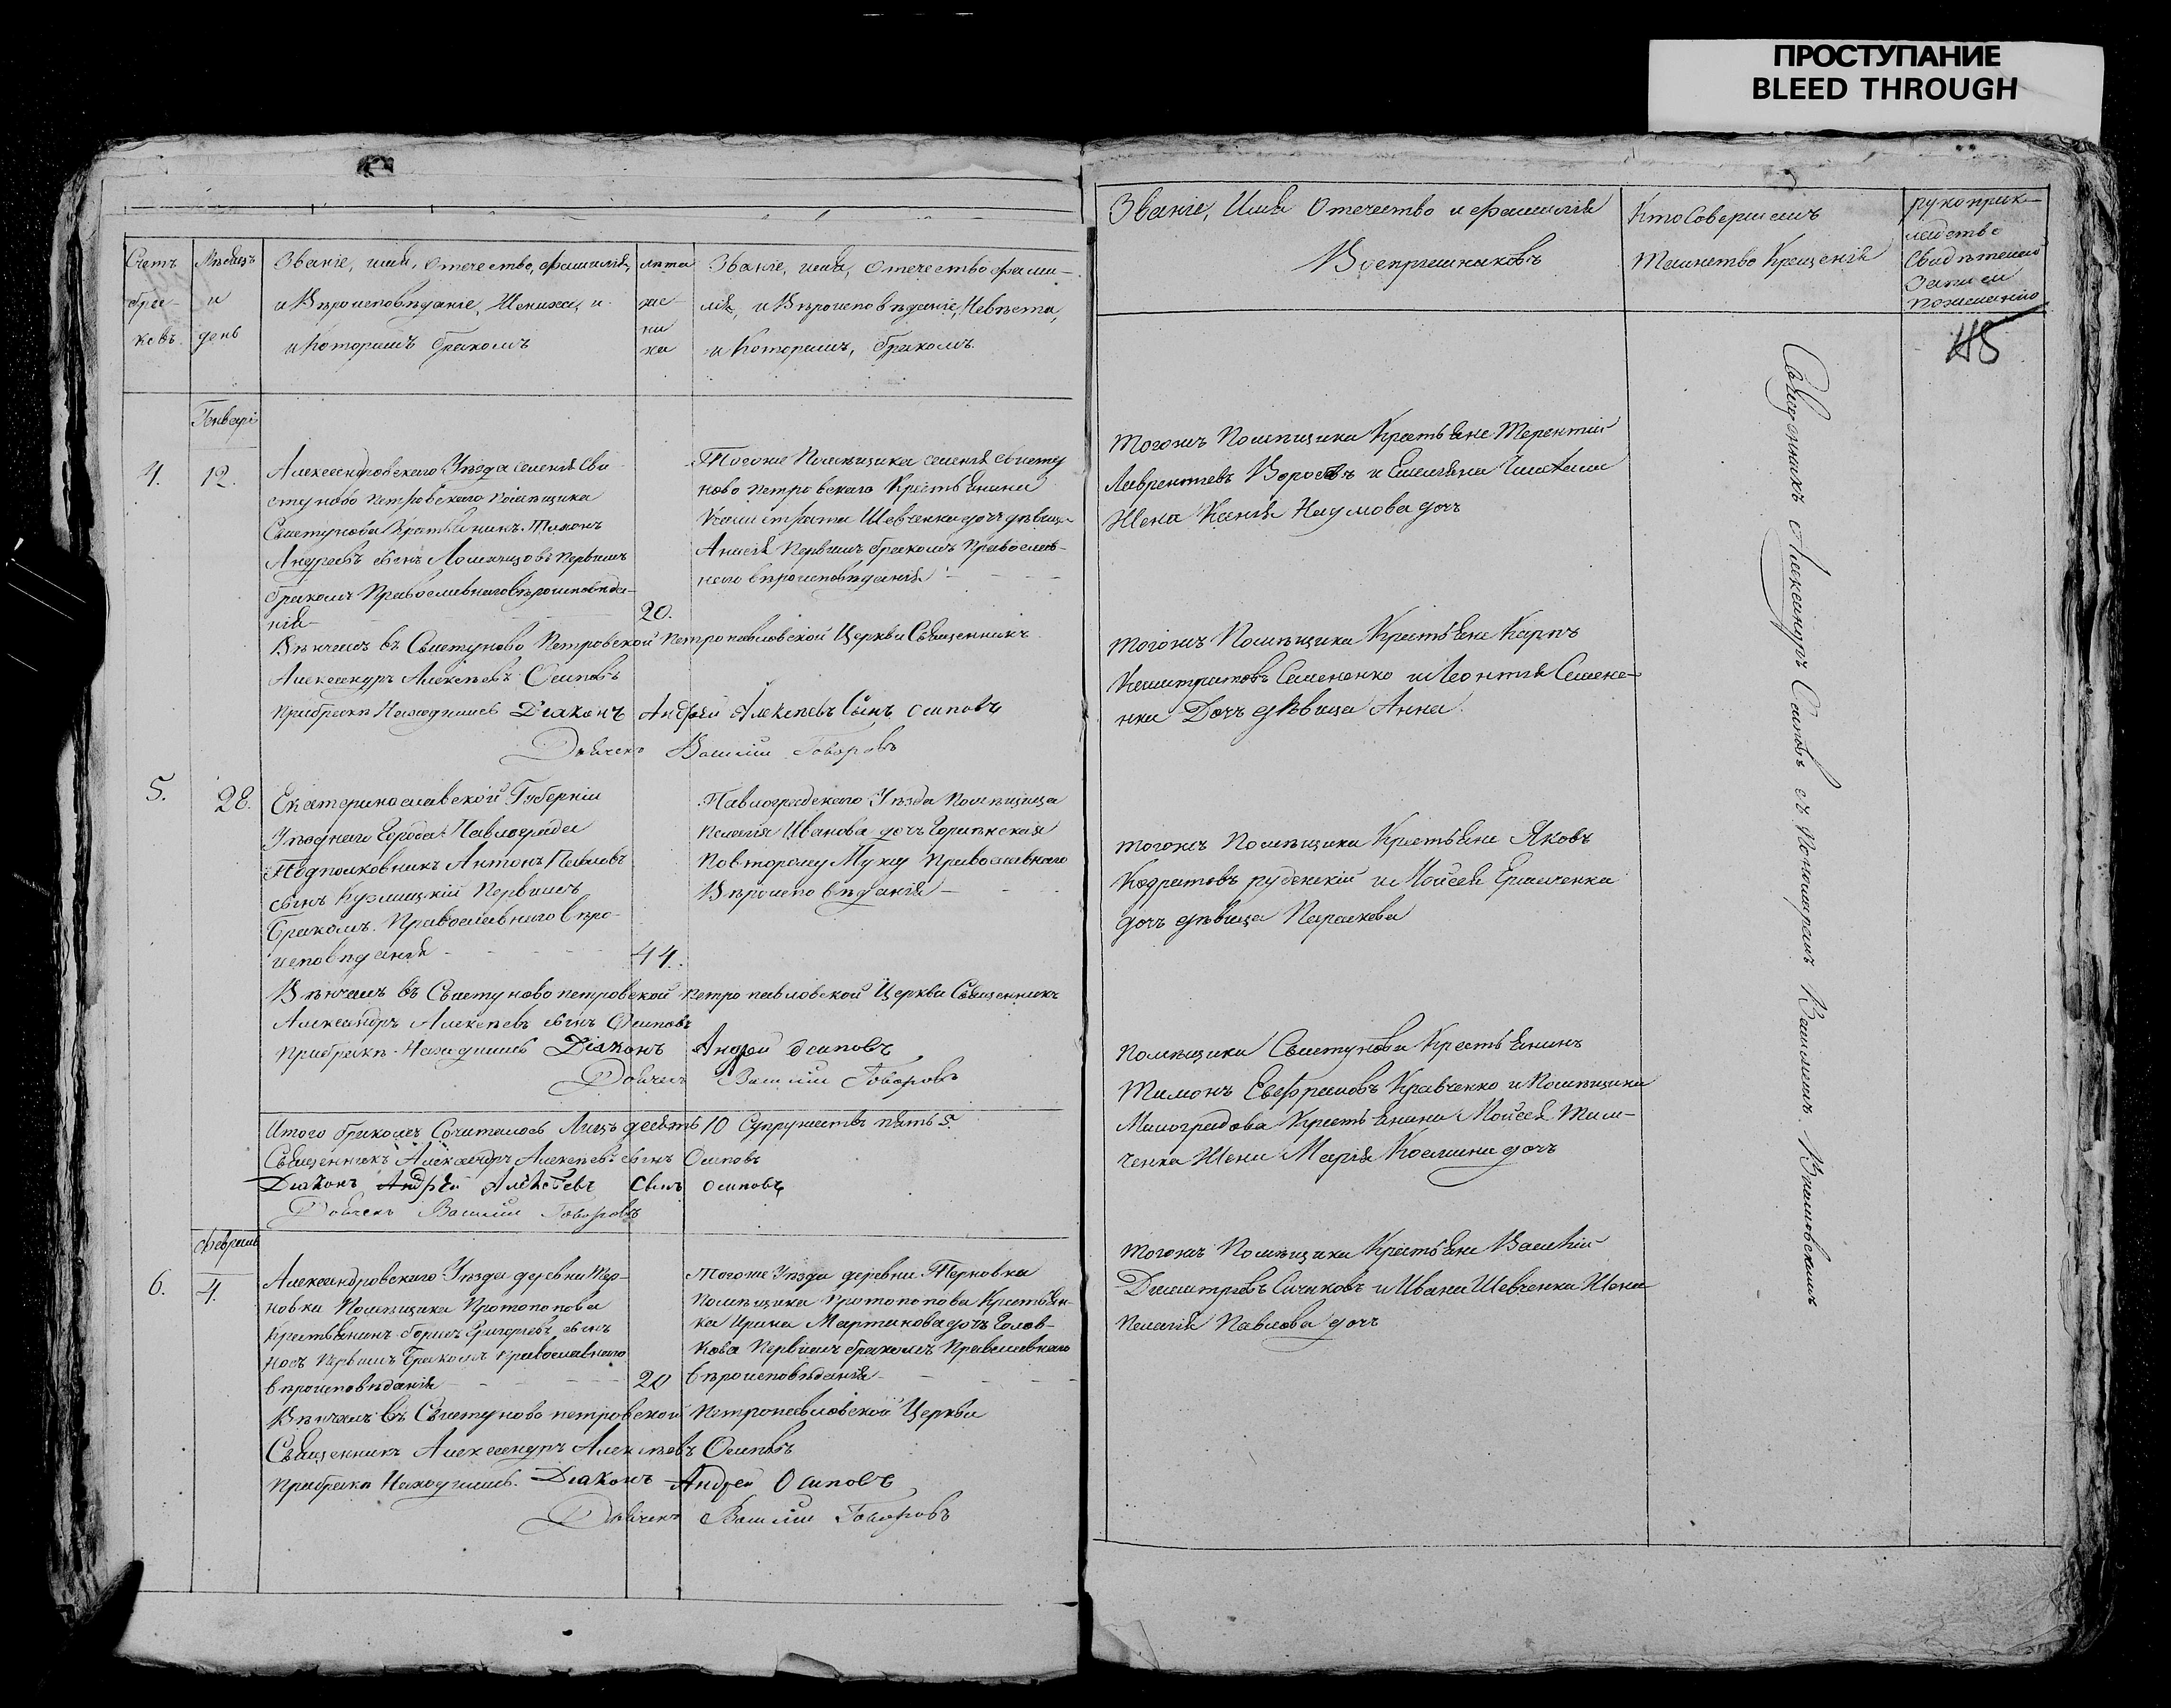 ПРОСТУПАНИЕ
BLEED THROUGH
Счетъ браковъ
Мѣсяцъ и день
Званіе, имя, отечество, фамилія,
и Вѣроисповѣданіе, Жениха, и
и которымъ бракомъ
лѣта жениха
Званіе, имя, отечество фами-
лія, и Вѣроисповѣданіе, Невѣсты,
и которымъ, бракомъ.
Генварь
4.
12.
Александровскаго Уѣзда селенія Сви
стуново петровскаго помѣщика
Свистунова Крестьянинъ Тихонъ
Андреевъ сынъ Первымъ
бракомъ Православнаго вѣроисповѣда-
нія
20.
Тогоже Помѣщика селенія свисту
ново петровскаго Крестьянина
Калистрата Шевченка дочь дѣвица
Анисія Первымъ бракомъ Православ-
наго вѣроисповѣданія
Вѣнчалъ въ Свистуново Петровской Петропавловской Церкви Священникъ
Александръ Алексѣевъ Осиповъ
Прибракѣ Находились Діаконъ Андрей Алексѣевъ Сынъ Осиповъ
Дьячекъ Василій Говоровъ
5.
28.
Екатеринославской Губерніи
Уѣзднаго Города Павлограда
Подполковникъ Антонъ Павловъ
сынъ Кузмицкій Первымъ
Бракомъ. Православнаго вѣро-
исповѣданія
44.
Павлоградскаго Уѣзда Помѣщица
Пелагія Иванова дочь
Повторому Мужу Православнаго
Вѣроисповѣданія
Вѣнчалъ въ Свистуново петровской петропавловской Церкви Священникъ
Александръ Алексѣевъ сынъ Осиповъ
Прибракѣ Находились Діаконъ Андрей Осиповъ
Дьячекъ Василій Говоровъ
Итого бракомъ Сочиталось Лицъ десять 10 Супружествъ пять 5.
Священникъ Александръ Алексѣевъ сынъ Осиповъ
Діаконъ Андрей Алексѣевъ Сынъ Осиповъ
Дьячекъ Василій Говоровъ
Февраль
6.
4.
Александровскаго Уѣзда деревни Тер-
новки Помѣщика Протопопова
Крестьянинъ Борисъ Григорьевъ сынъ
Носъ Первымъ Бракомъ Православнаго
вѣроисповѣданія
20
Тогоже Уѣзда деревни Терновки
Помѣщика Протопопова Крестьян-
ка Ирина Мартинова дочь Голов-
кова Первымъ бракомъ Православнаго
вѣроисповѣданія
Вѣнчалъ въ Свистуново петровской Петропавловской Церкви
Священникъ Александръ Алексѣевъ Осиповъ
Прибракѣ Находились Діаконъ Андрей Осиповъ
Дьячекъ Василій Говоровъ
Званіе, Имя Отечество и фамилія
Воспріемниковъ
Кто Совершалъ
Таинство Крещенія
рукоприк-
ладство
Свидѣтелей
Записи
Пожеланію
Тогожъ Помѣщика Крестьяне Терентій
Лаврентіевъ и Емелияна
Жена Ксенія Наумова дочь
Тогожъ Помѣщика Крестьяне Карпъ
Калистратовъ Семененко и Леонтія Семене-
нка Дочь дѣвица Анна
Тогожъ Помѣщика Крестьяне Яковъ
Кодратовъ рубенскій и Моисея Ермаченка
дочь дѣвица Параскева
Помѣщика Свистунова Крестьянинъ
Тимонъ Евфремовъ Кравченко и Помѣщика
Милоградова Крестьянина Моисея Тим-
ченка Жена Марія Космина дочь
Тогожъ Помѣщика Крестьяне Василій
Димитріевъ и Ивана Шевченка Жена
Пелагія Павлова дочь
Священникъ Александръ Осиповъ съ Пономаремъ